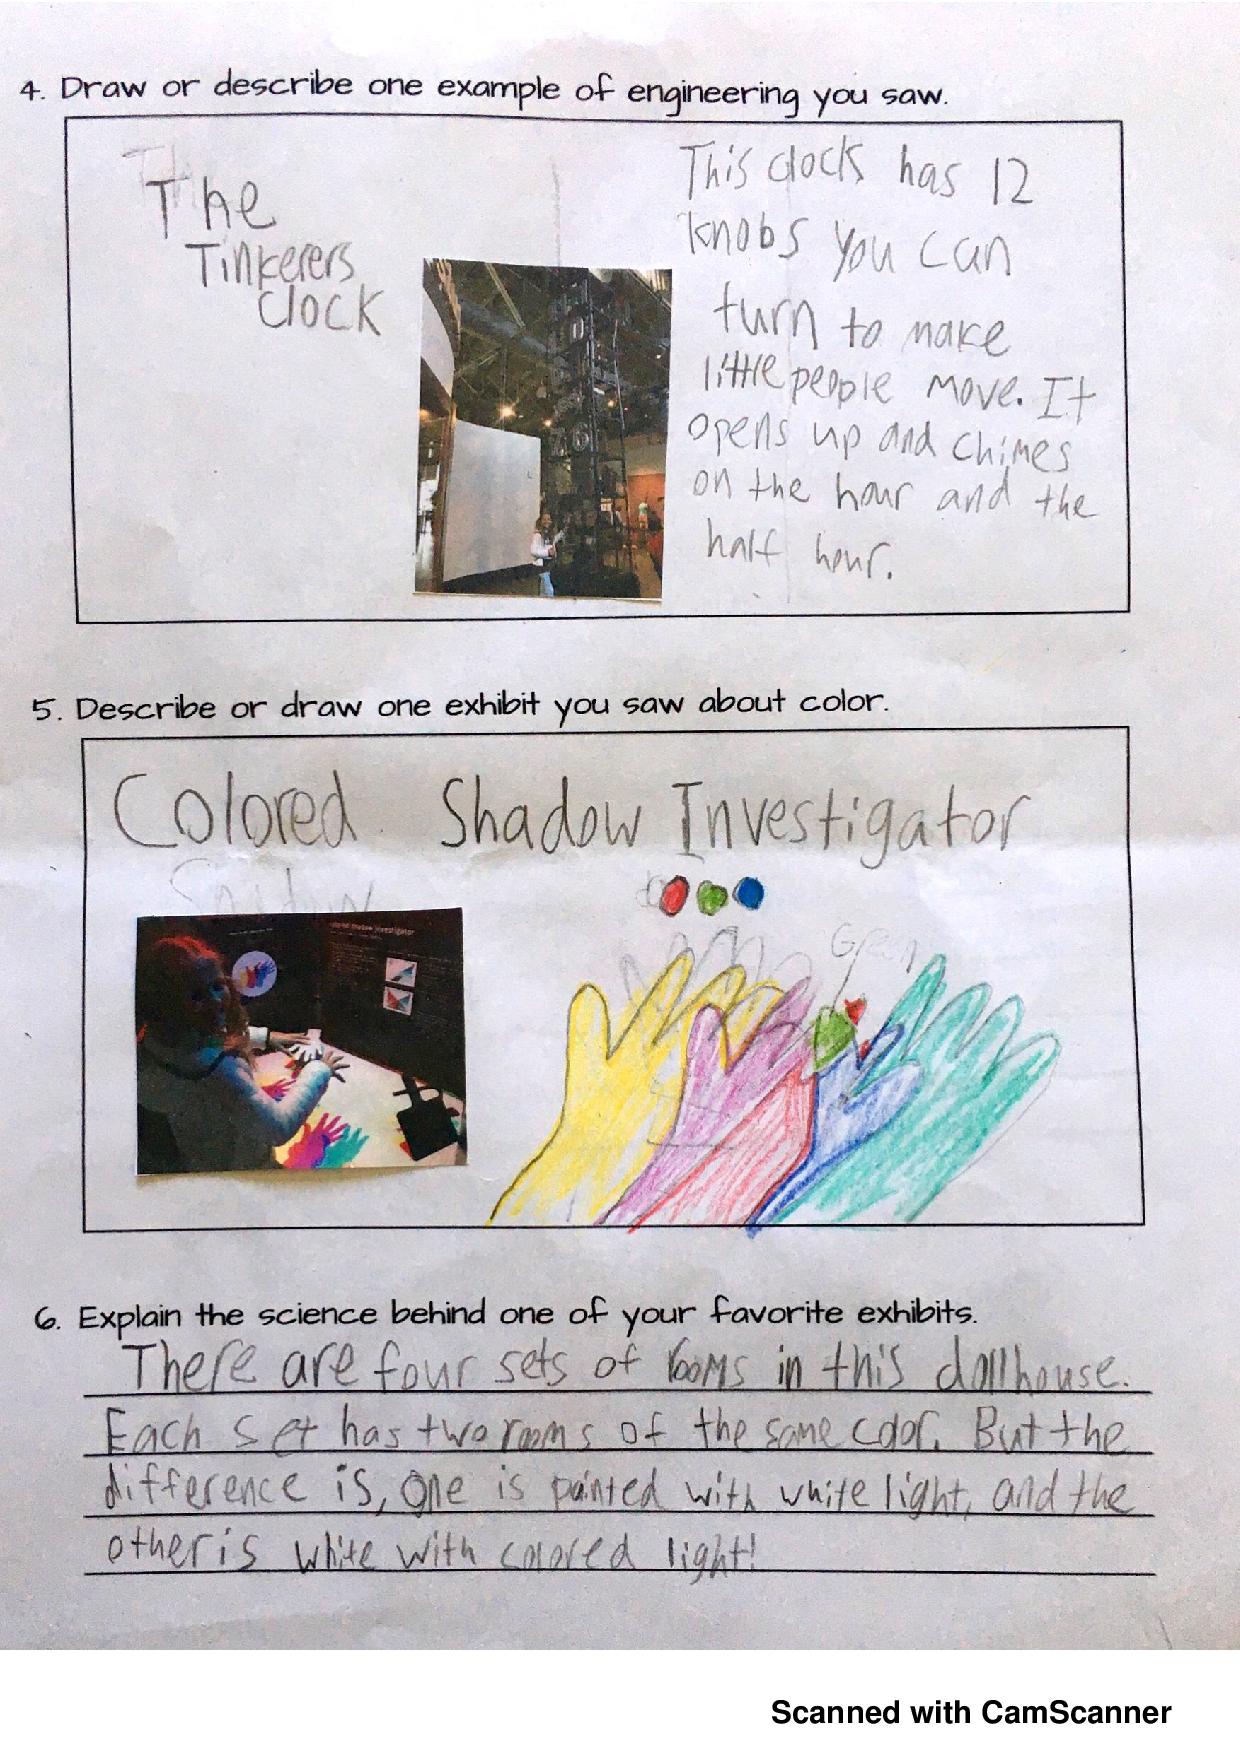 4. Draw or describe one example of engineering you saw.
The
Tinkerers
Clock
This clock has 12
knobs you can
turn to make
little people move. It
opens up and chimes
on the hour and the
half hour.
5. Describe or draw one exhibit you saw about color.
Colored Shadow Investigator
Green
6. Explain the science behind one of your favorite exhibits.
There are four sets of rooms in this dollhouse.
Each set has two rooms of the same color. But the
difference is, one is painted with white light, and the
other is white with colored light!
Scanned with CamScanner